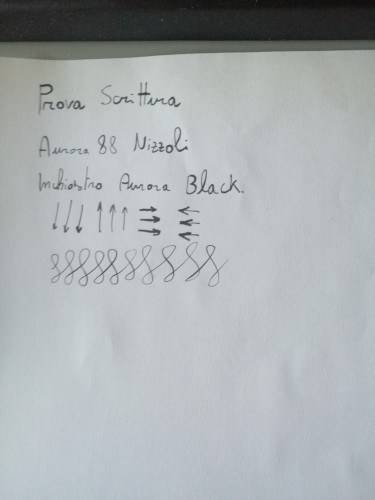 Prova Scrittura
Aurora 88 Nizzoli
Inchiostro Aurora Black.